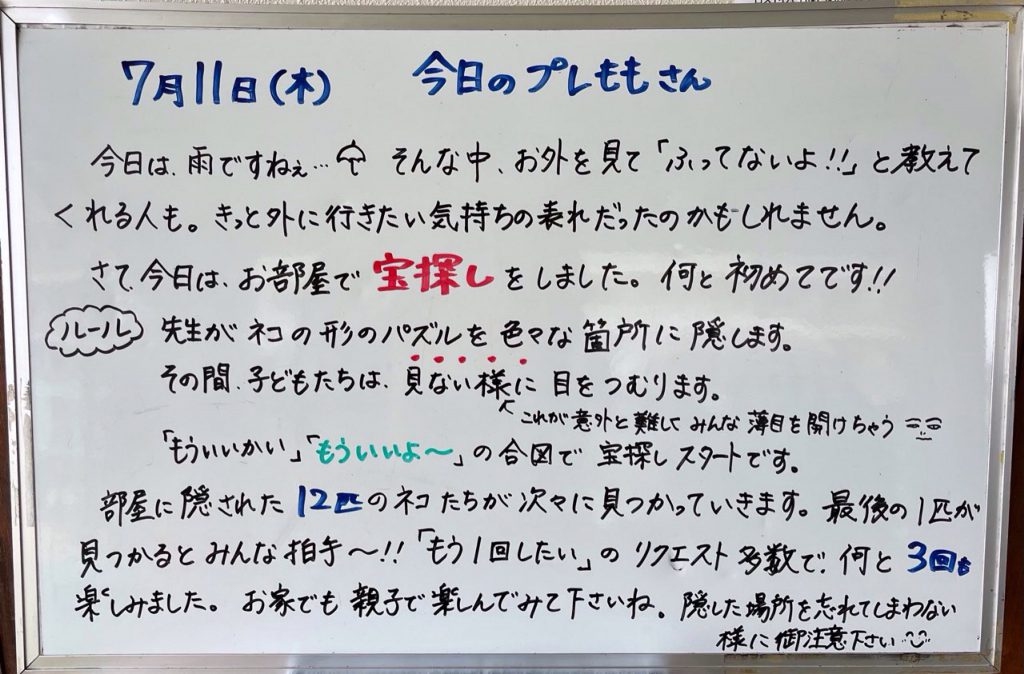 7月11日(木)　今日のプレももさん
今日は、雨ですねぇ… そんな中、お外を見て「ふってないよ!!」と教えて
くれる人も。きっと外に行きたい気持ちの表れだったのかもしれません。
さて、今日は、お部屋で宝探しをしました。何と初めてです!!
ルール 先生がネコの形のパズルを色々な箇所に隠します。
その間、子どもたちは、見ない様に目をつむります。
これが意外と難しくみんな薄目を開けちゃう
「もういいかい」「もういいよ〜」の合図で宝探しスタートです。
部屋に隠された12匹のネコたちが次々に見つかっていきます。最後の1匹が
見つかるとみんな拍手〜!!「もう1回したい」のリクエスト多数で、何と3回も
楽しみました。お家でも親子で楽しんでみて下さいね。隠した場所を忘れてしまわない
様に御注意下さい